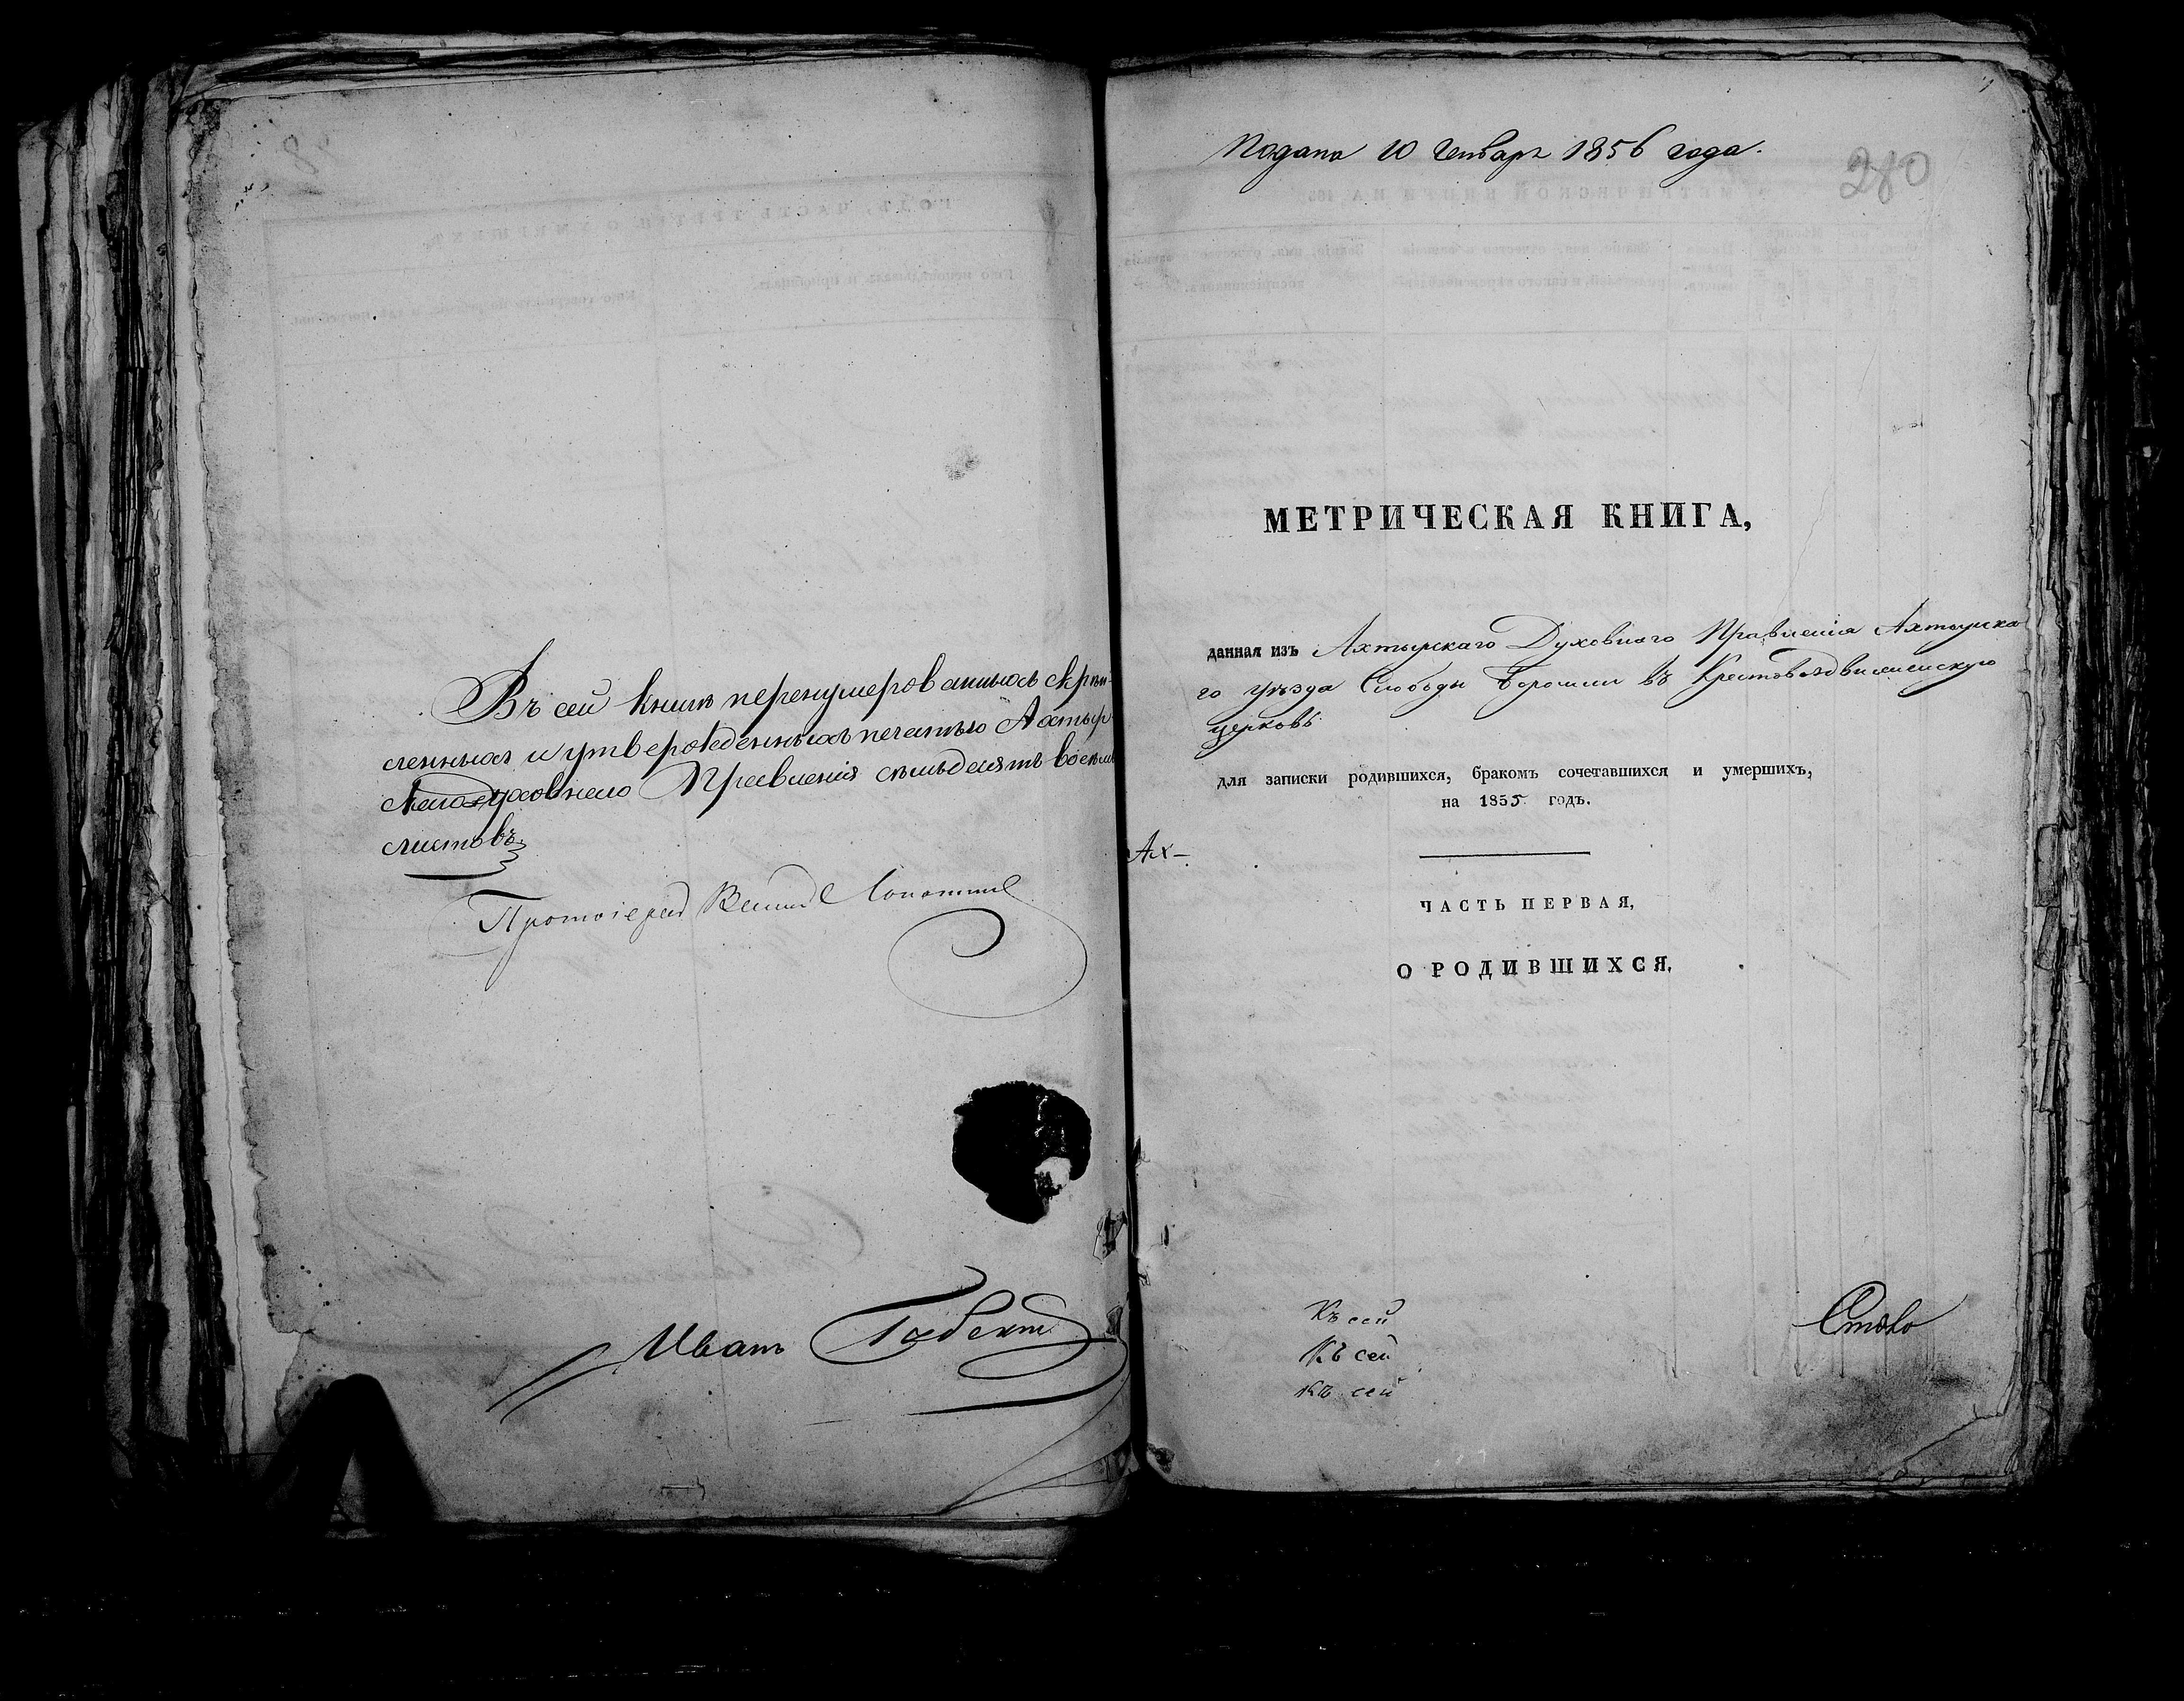 Въ сей книгѣ перенумерованныхъ скрѣп-
ленныхъ и утвержденныхъ печатью Ахтыр-
скаго духовнаго Правленія семьдесятъ восемь
листовъ
Протоіерей
Иванъ
1
Подана 10 Генваря 1856 года.
280
МЕТРИЧЕСКАЯ КНИГА,
данная изъ Ахтырскаго Духовнаго Правленія Ахтырска
го уѣзда Слободы Боромли въ Крестовоздвиженскую
церковь
для записки родившихся, бракомъ сочетавшихся и умершихъ,
на 1855 годъ.
Ах-
ЧАСТЬ ПЕРВАЯ,
О РОДИВШИХСЯ.
Къ сей
Къ сей
Къ сей